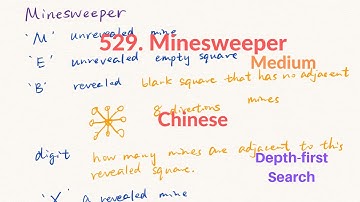 Minesweeper
'M' unrevealed mine
529. Minesweeper
'E' unrevealed empty square
Medium
'B' revealed blank square that has no adjacent
8 directions mines
Chinese
digit how many mines are adjacent to this
revealed square.
Depth-first
Search
'X' a revealed mine